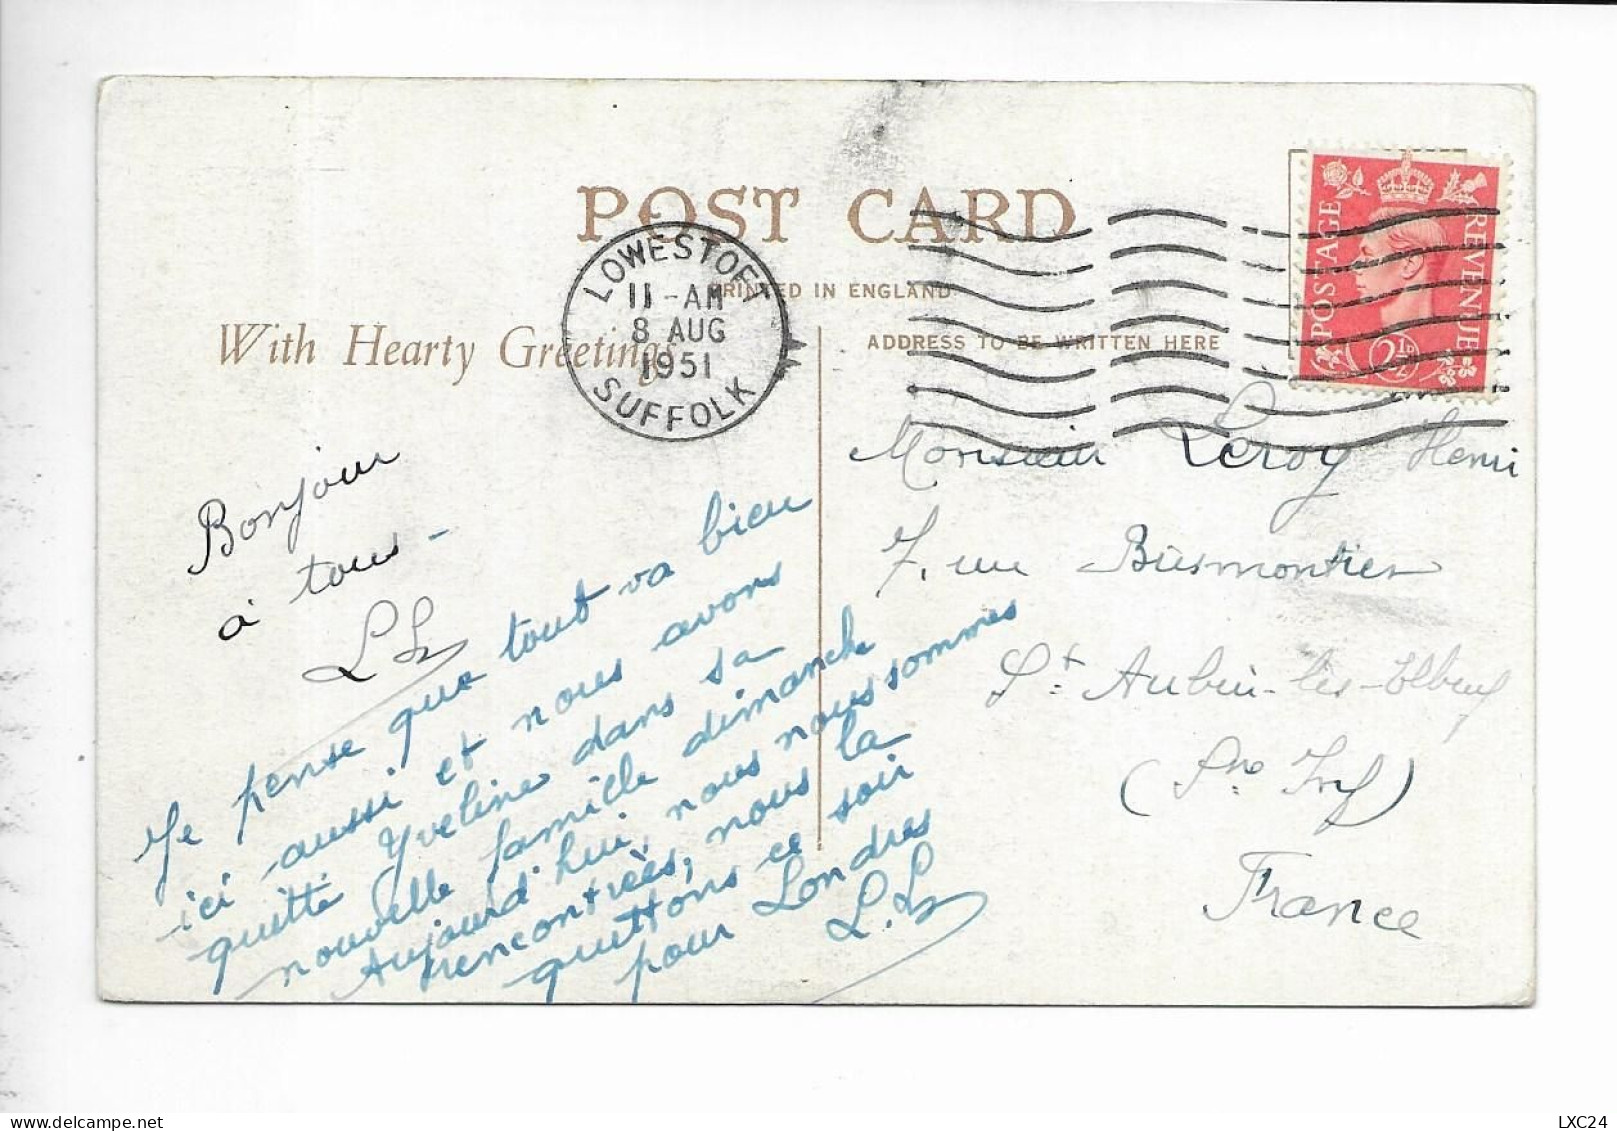 POST CARD
PRINTED IN ENGLAND
With Hearty Greetings
ADDRESS TO BE WRITTEN HERE
LOWESTOFT
11-AM
8 AUG
1951
SUFFOLK
POSTAGE
REVENUE
2½D
Bonjour
à tous -
L L
Je pense que tout va bien
ici aussi et nous avons
quitté Yveline dans sa
nouvelle famille dimanche
Aujourd'hui, nous nous sommes
rencontrées, nous la
quittons ce soir
pour Londres
L. L
Monsieur Leroy Henri
7. rue
St Aubin-lès-Elbeuf
(Sne Infre)
France
LXC24